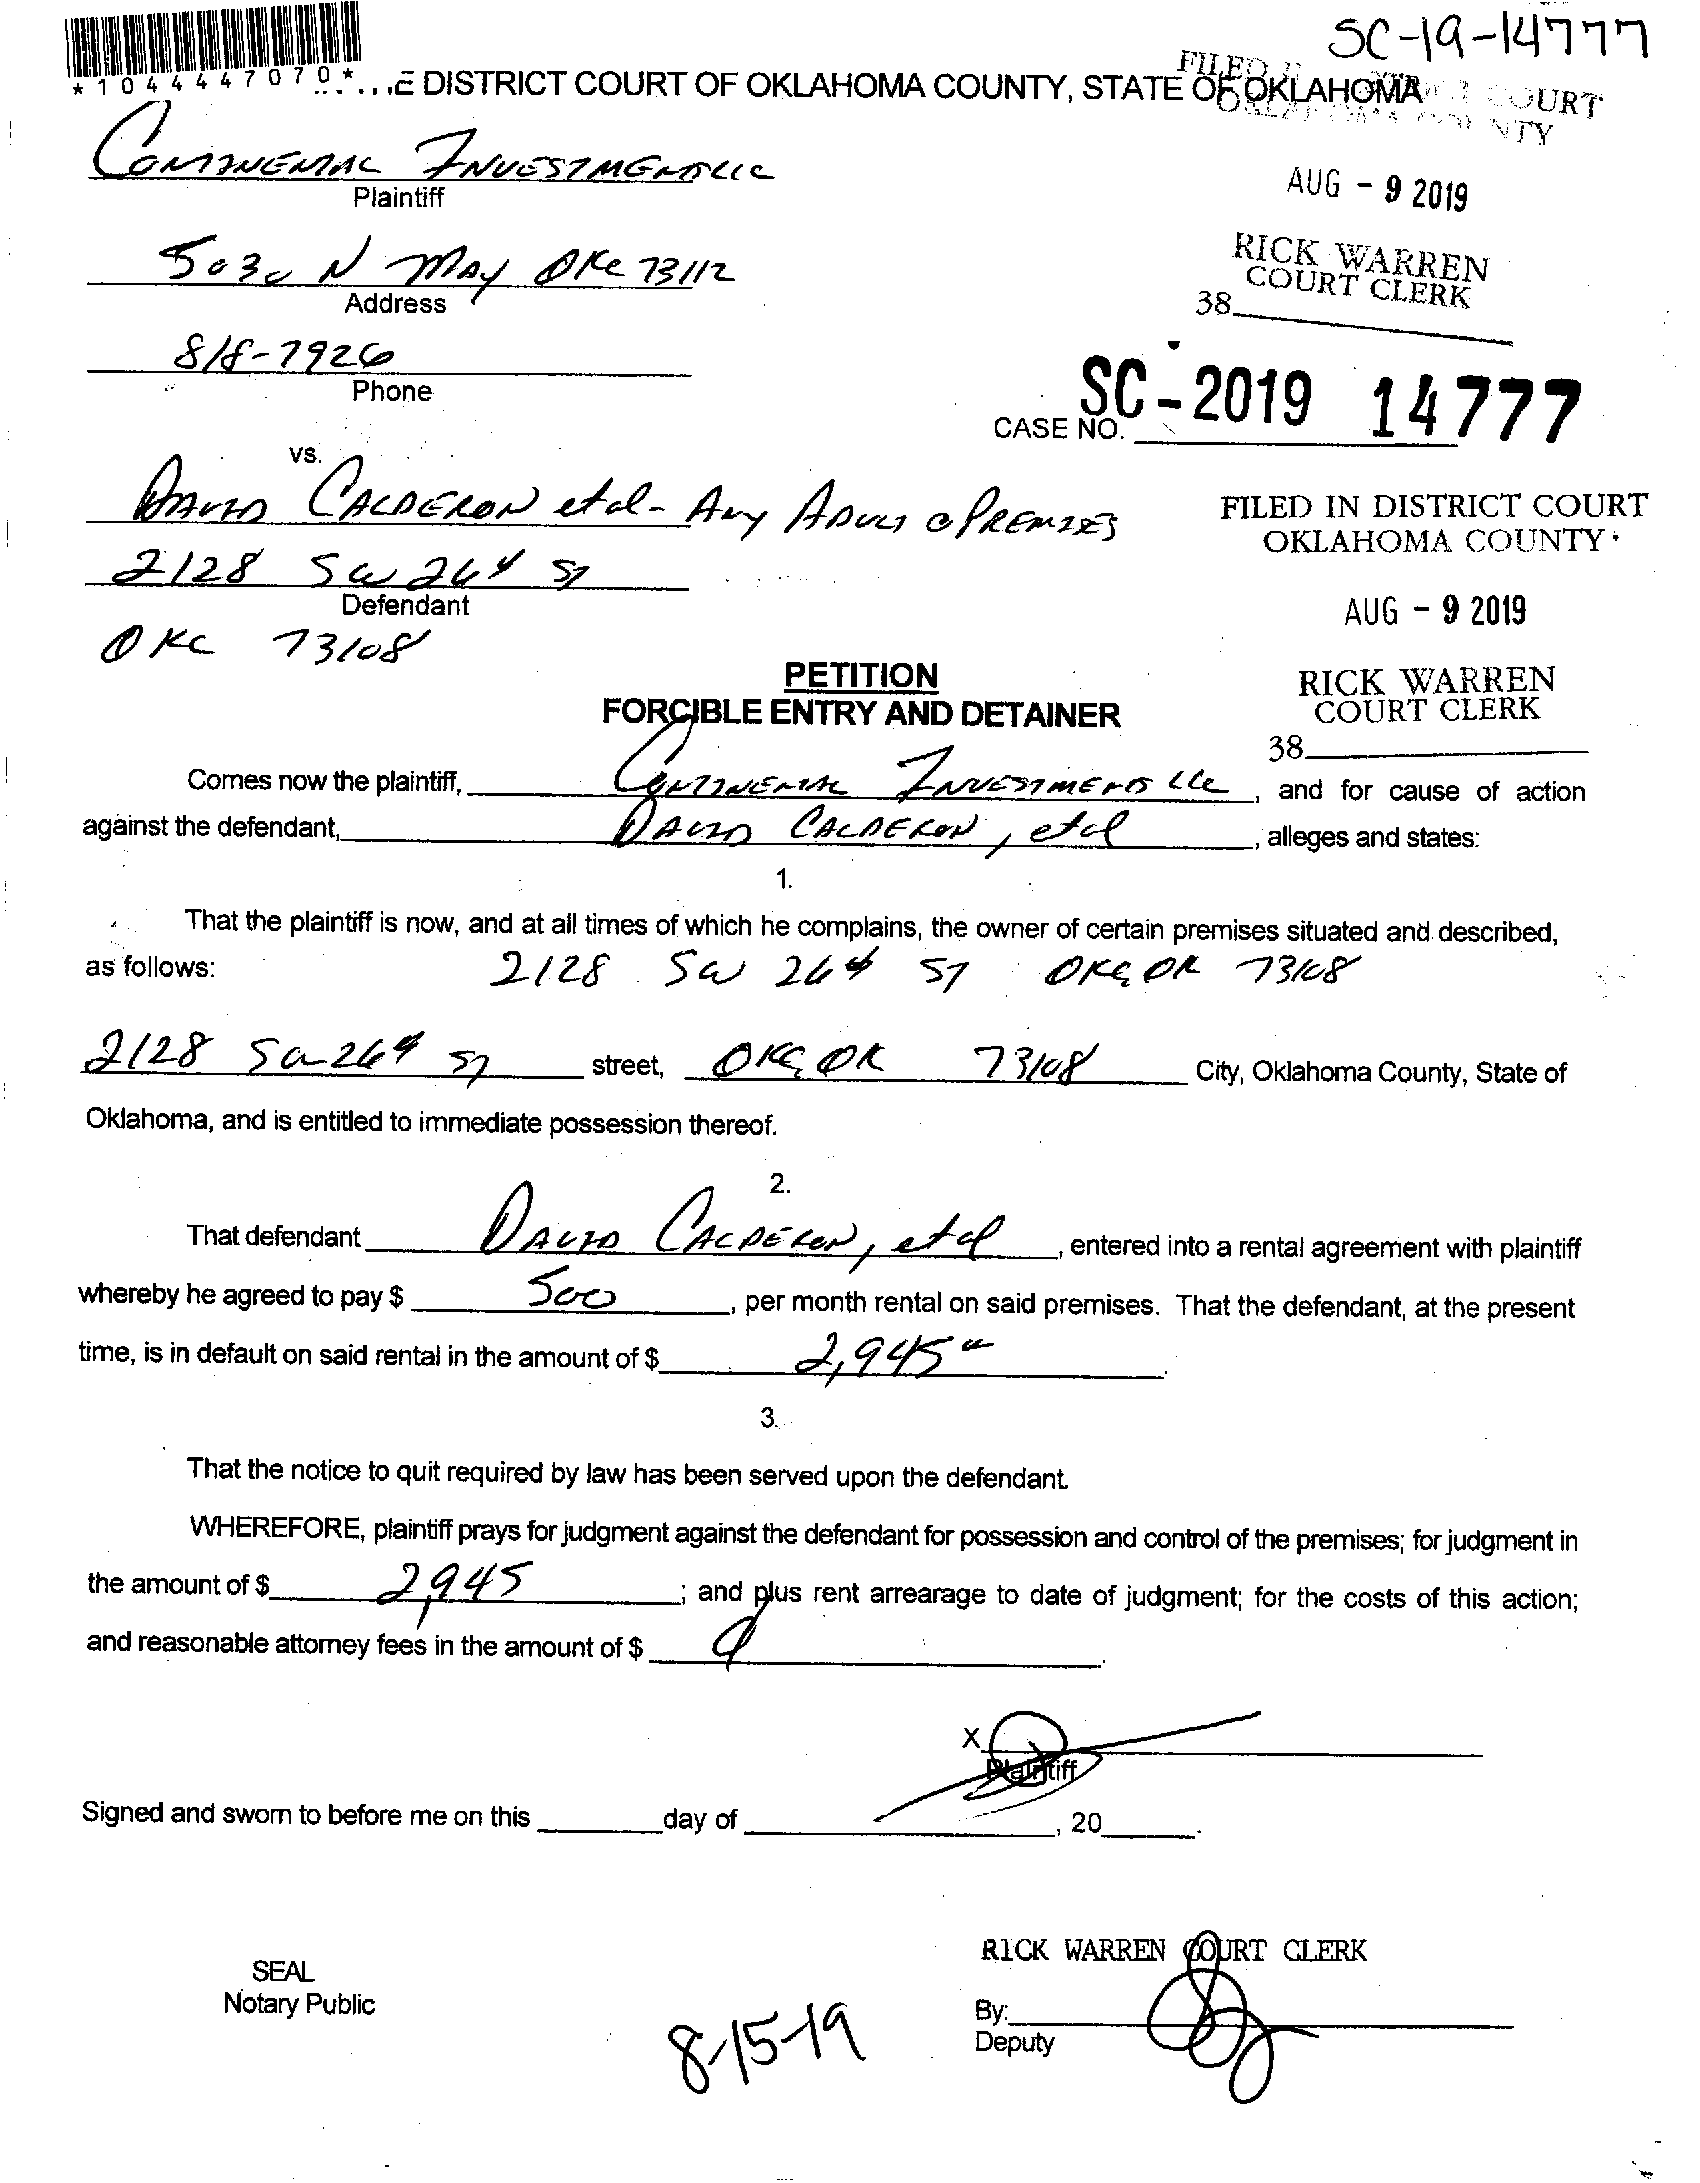 SC-19-14777
*1044447070*
E DISTRICT COURT OF OKLAHOMA COUNTY, STATE OF OKLAHOMA
FILED COURT
CONTINENTAL INVESTMENTS LLC
Plaintiff
AUG - 9 2019
5030 N MAY OKC 73112
Address
RICK WARREN
COURT CLERK
38
818-7926
Phone
SC-2019 14777
CASE NO.
vs.
DAVID CALDERON et al - ANY ADULT @ PREMISES
FILED IN DISTRICT COURT
OKLAHOMA COUNTY
2128 SW 26th ST
Defendant
AUG - 9 2019
OKC 73108
PETITION
RICK WARREN
FORCIBLE ENTRY AND DETAINER
COURT CLERK
38
Comes now the plaintiff, CONTINENTAL INVESTMENTS LLC, and for cause of action
against the defendant, DAVID CALDERON, et al, alleges and states:
1.
That the plaintiff is now, and at all times of which he complains, the owner of certain premises situated and described,
as follows: 2128 SW 26th ST OKC, OK 73108
2128 SW 26th ST street, OKC, OK 73108 City, Oklahoma County, State of
Oklahoma, and is entitled to immediate possession thereof.
2.
That defendant DAVID CALDERON, et al, entered into a rental agreement with plaintiff
whereby he agreed to pay $ 500, per month rental on said premises. That the defendant, at the present
time, is in default on said rental in the amount of $ 2,945.
3.
That the notice to quit required by law has been served upon the defendant.
WHEREFORE, plaintiff prays for judgment against the defendant for possession and control of the premises; for judgment in
the amount of $ 2,945; and plus rent arrearage to date of judgment; for the costs of this action;
and reasonable attorney fees in the amount of $
X
Plaintiff
Signed and sworn to before me on this day of , 20 .
RICK WARREN COURT CLERK
SEAL
Notary Public
By:
Deputy
8-15-19